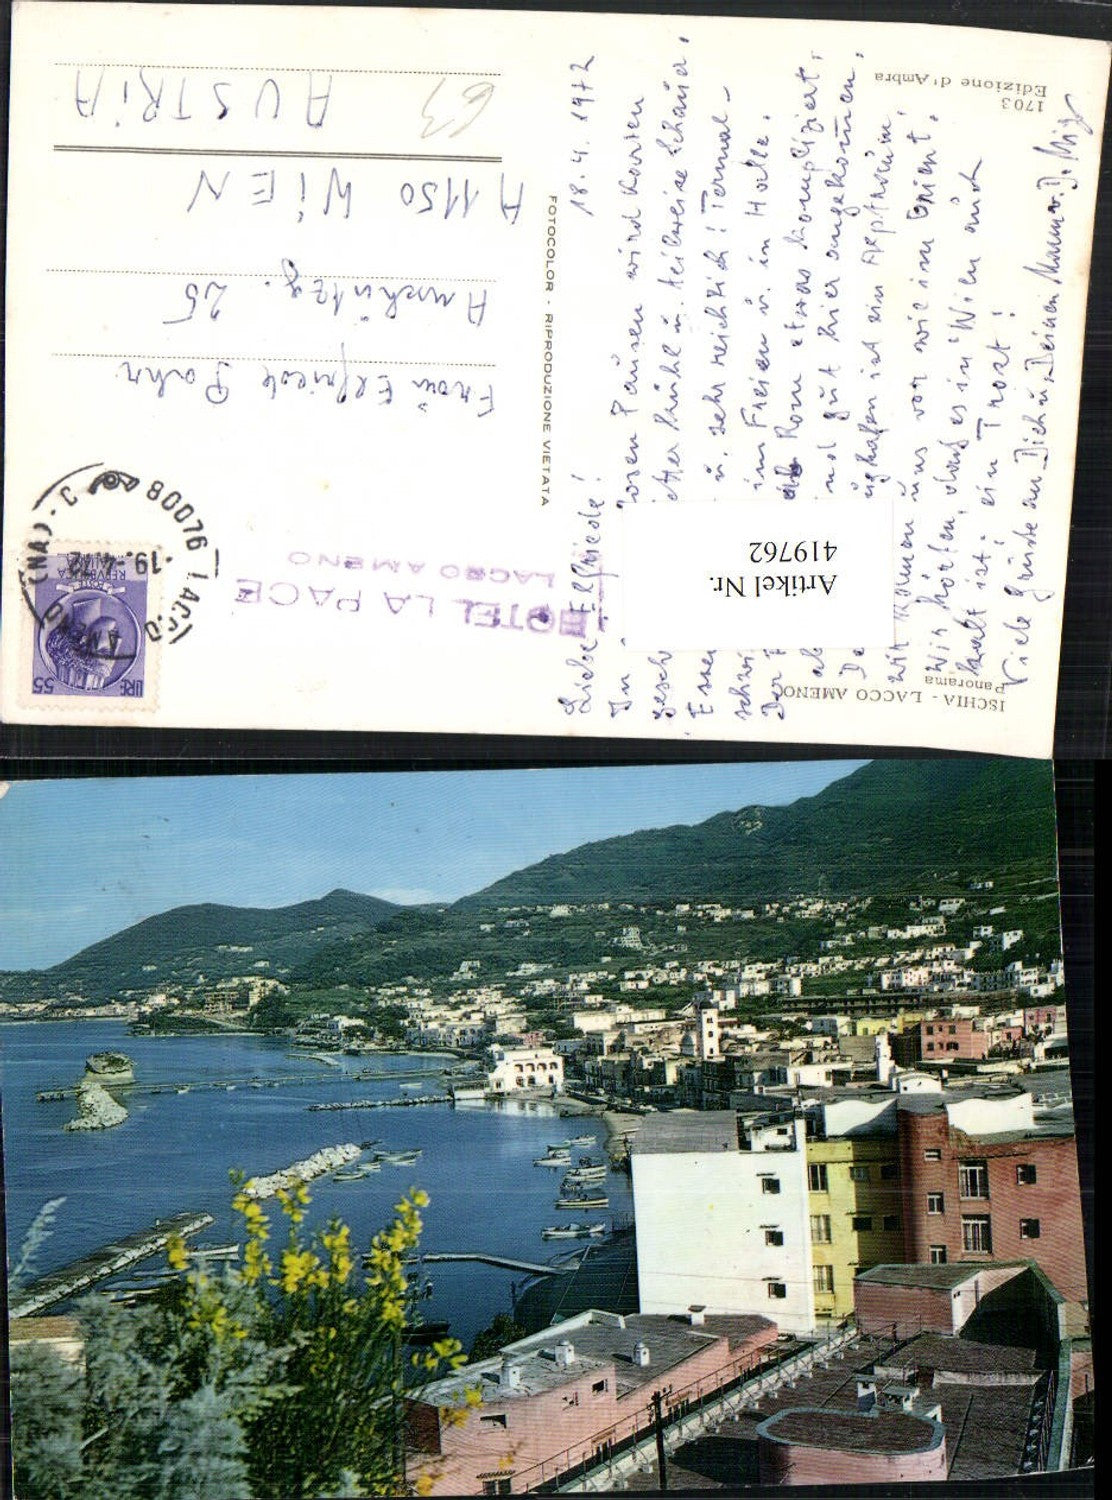 ISCHIA - LACCO AMENO
Panorama
1703
Edizione d'Ambra
FOTOCOLOR - RIPRODUZIONE VIETATA
LIRE 55
POSTE
REPVBBLICA
ITALIANA
80076 LACCO AMENO (NA)
19.-4.72
HOTEL LA PACE
LACCO AMENO
Frau Elfriede Pahr
Anschützg. 25
A 1150 WiEN
AUSTRiA
63
18.4.1972
Liebe Elfriede!
In Pausen wird Karten
gesch kühl u. teilweise Schauer.
Essen u. sehr reichlich! Termal-
schwi im Freien u. in Halle.
Der Rom etwas kompliziert,
ab und gut hier angekommen.
De ist ein
Wir kommen uns vor wie im Orient.
Wir hörten, daß es in Wien auch
kalt ist: ein Trost!
Viele Grüße an Dich u. Deinen Mann v. D.
Artikel Nr.
419762